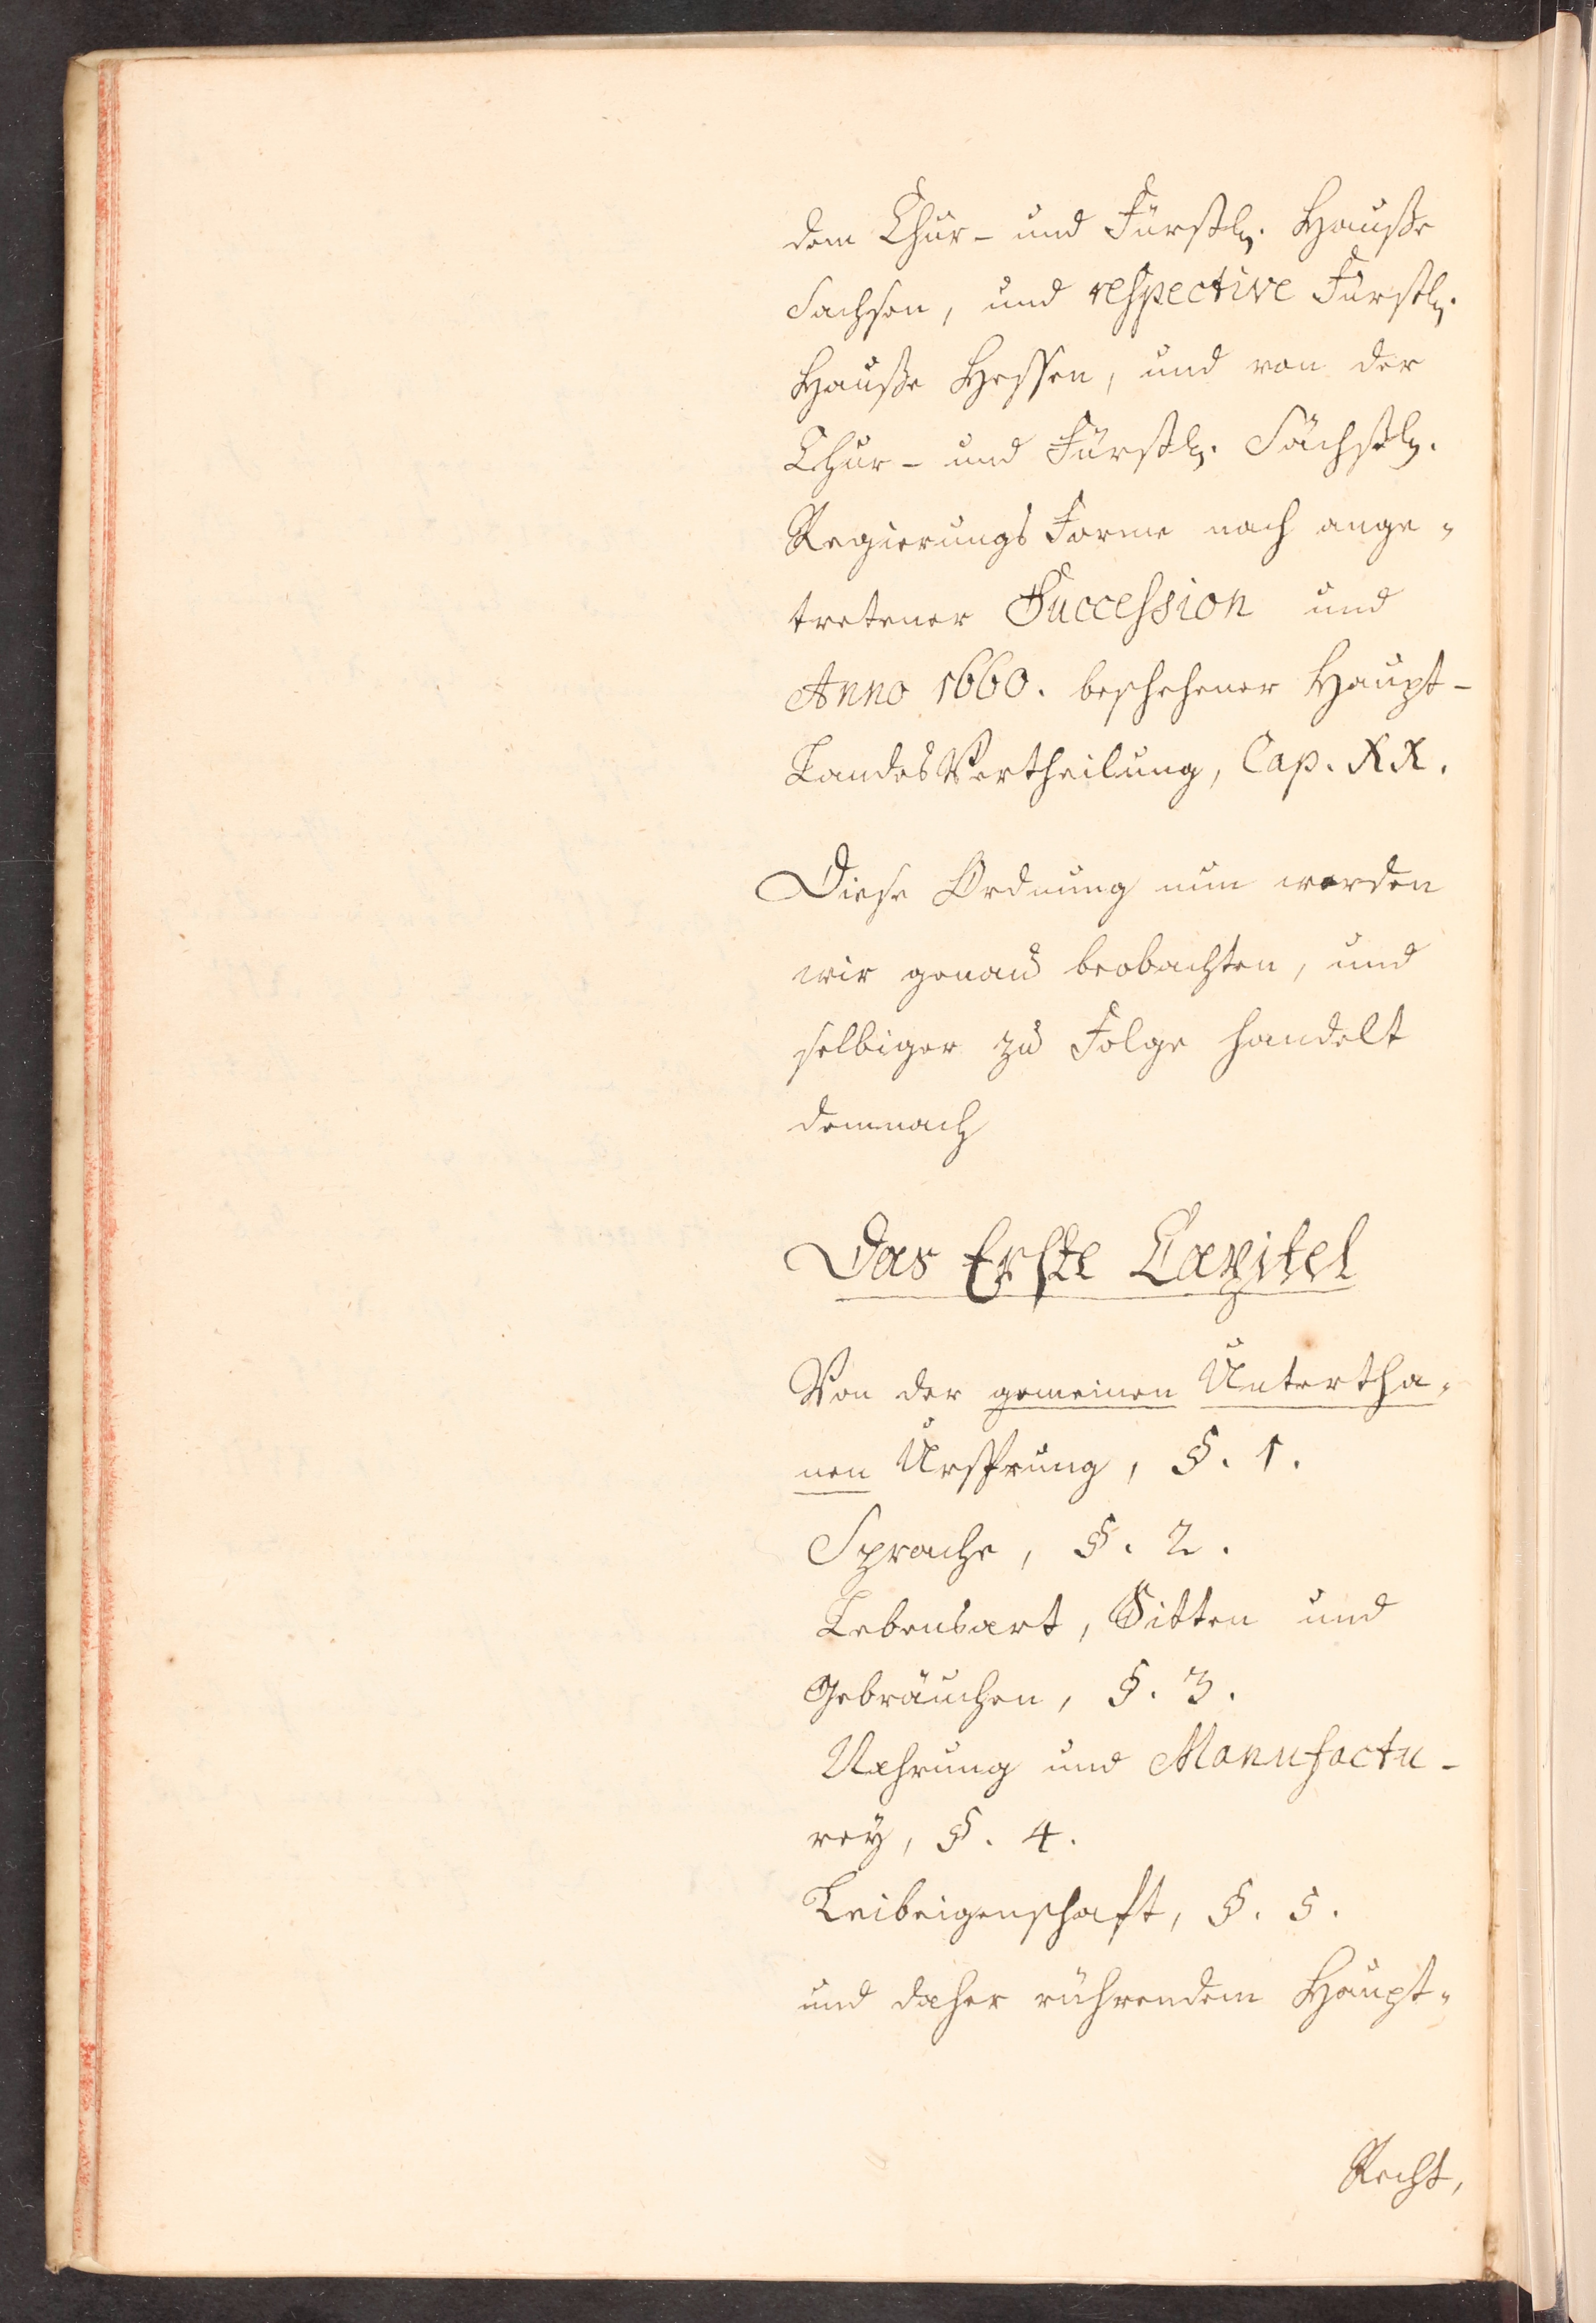 dem Chur- und Fürstl. Hauße
Sachsen, und respective Fürstl.
Hauße Hessen, und von der
Chur- und Fürstl. Sächßl.
Regierungs Forme nach ange-
tretener Succession und
Anno 1660. beschehener Haupt-
Landes Vertheilung, Cap. XX.
Diese Ordnung nun werden
wir genau beobachten, und
selbiger zu Folge handelt
demnach
Das Erste Capitel
Von der gemeinen Untertha-
nen Ursprung, §. 1.
Sprache, §. 2.
Lebensart, Sitten und
Gebräuchen, §. 3.
Nahrung und Manufactu-
rey, §. 4.
Leibeigenschaft, §. 5.
und daher rührendem Haupt-
Recht,